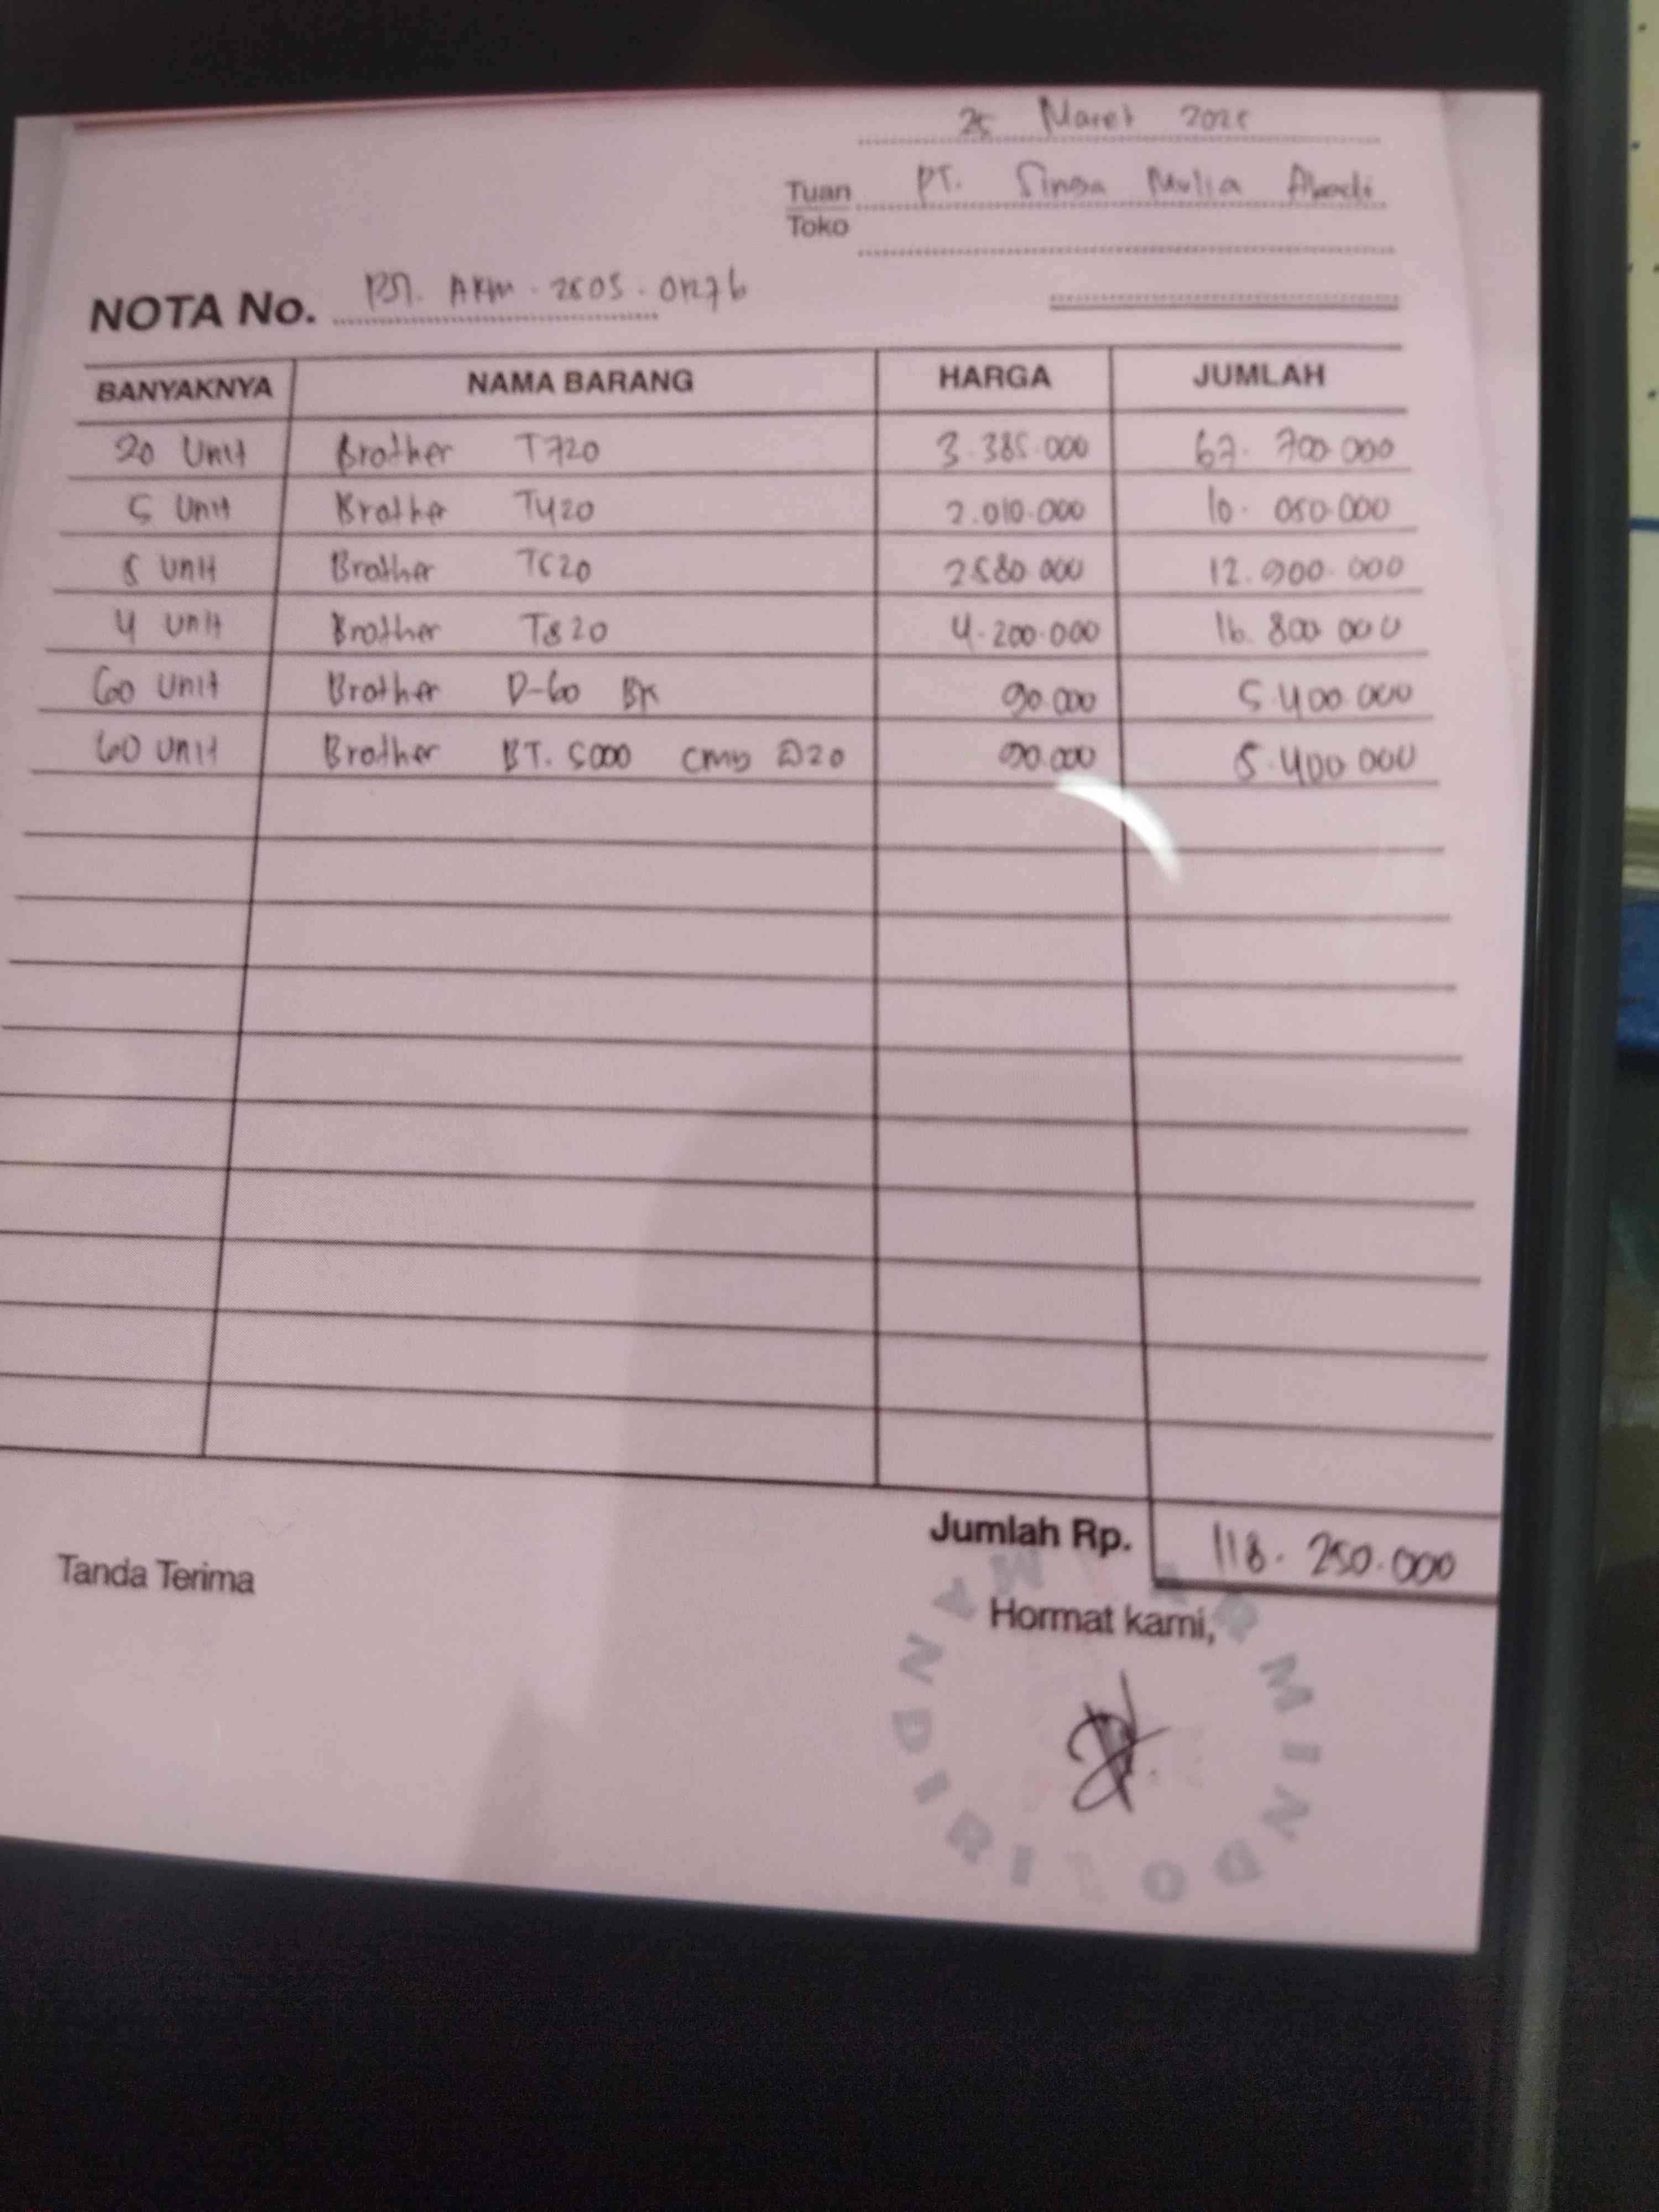 25 Maret 2025
Tuan PT. Singa Mulia Abadi
Toko
NOTA No.
BANYAKNYA NAMA BARANG HARGA JUMLAH
20 Unit Brother T720 3.385.000 67.700.000
5 Unit Brother T420 2.010.000 10.050.000
5 Unit Brother T520 2.580.000 12.900.000
4 Unit Brother T820 4.200.000 16.800.000
60 Unit Brother D-60 BK 90.000 5.400.000
60 Unit Brother BT. 5000 90.000 5.400.000
Jumlah Rp. 118.250.000
Tanda Terima
Hormat kami,